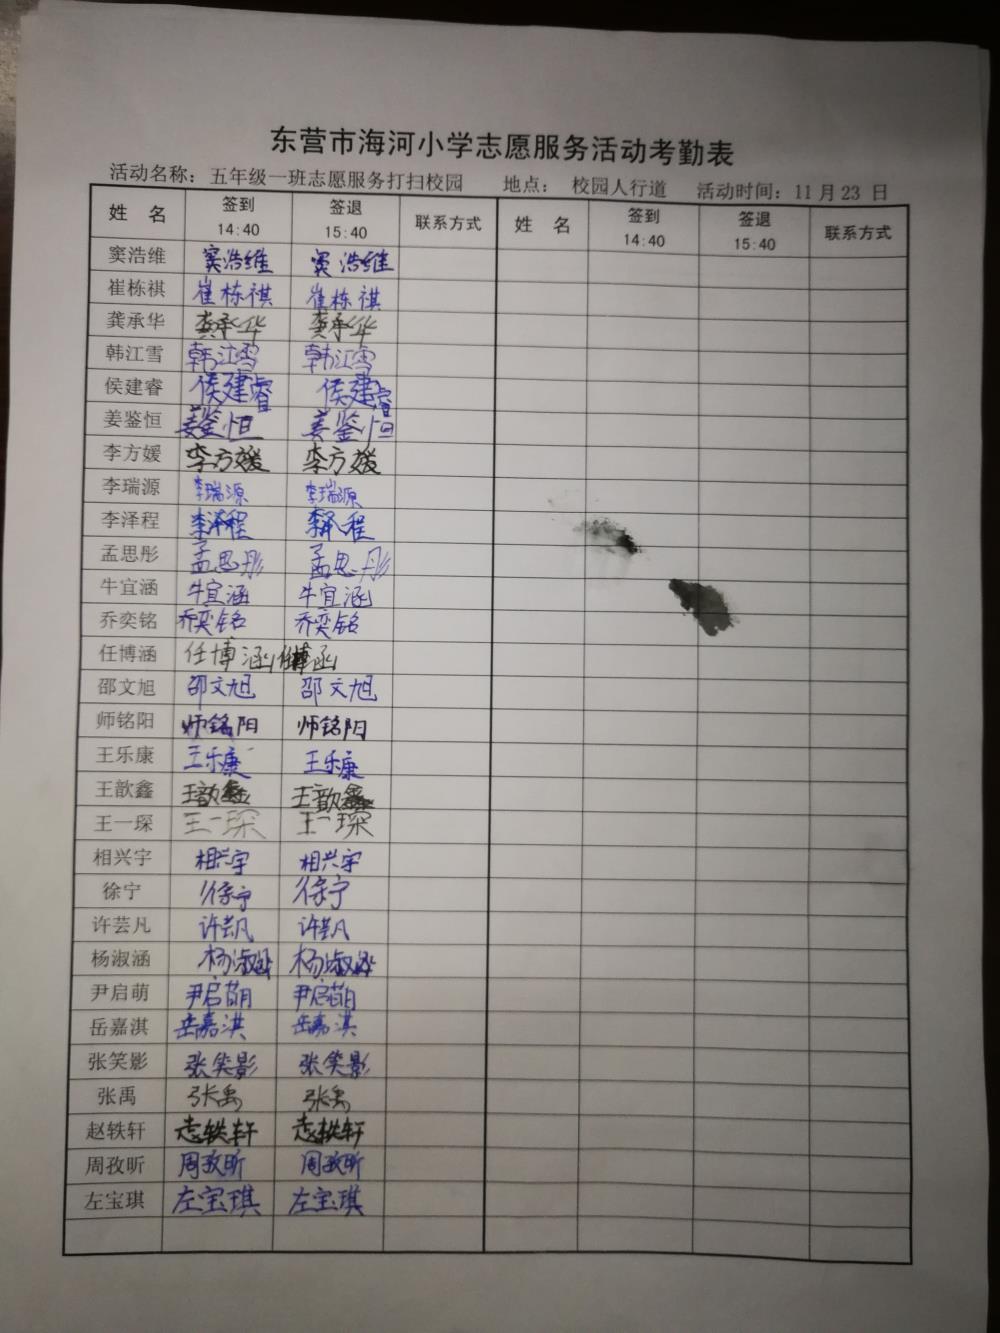 东营市海河小学志愿服务活动考勤表
活动名称：五年级一班志愿服务打扫校园 地点： 校园人行道 活动时间：11月23 日
姓 名 签到 14:40 签退 15:40 联系方式 姓 名 签到 14:40 签退 15:40 联系方式
窦浩维 窦浩维 窦浩维
崔栋祺 崔栋祺 崔栋祺
龚承华 龚承华 龚承华
韩江雪 韩江雪 韩江雪
侯建睿 侯建睿 侯建睿
姜鉴恒 姜鉴恒 姜鉴恒
李方媛 李方媛 李方媛
李瑞源 李瑞源 李瑞源
李泽程 李泽程 李泽程
孟思彤 孟思彤 孟思彤
牛宜涵 牛宜涵 牛宜涵
乔奕铭 乔奕铭 乔奕铭
任博涵 任博涵 任博涵
邵文旭 邵文旭 邵文旭
师铭阳 师铭阳 师铭阳
王乐康 王乐康 王乐康
王歆鑫 王歆鑫 王歆鑫
王一琛 王一琛 王一琛
相兴宇 相兴宇 相兴宇
徐宁 徐宁 徐宁
许芸凡 许芸凡 许芸凡
杨淑涵 杨淑涵 杨淑涵
尹启萌 尹启萌 尹启萌
岳嘉淇 岳嘉淇 岳嘉淇
张笑影 张笑影 张笑影
张禹 张禹 张禹
赵轶轩 赵轶轩 赵轶轩
周孜昕 周孜昕 周孜昕
左宝琪 左宝琪 左宝琪